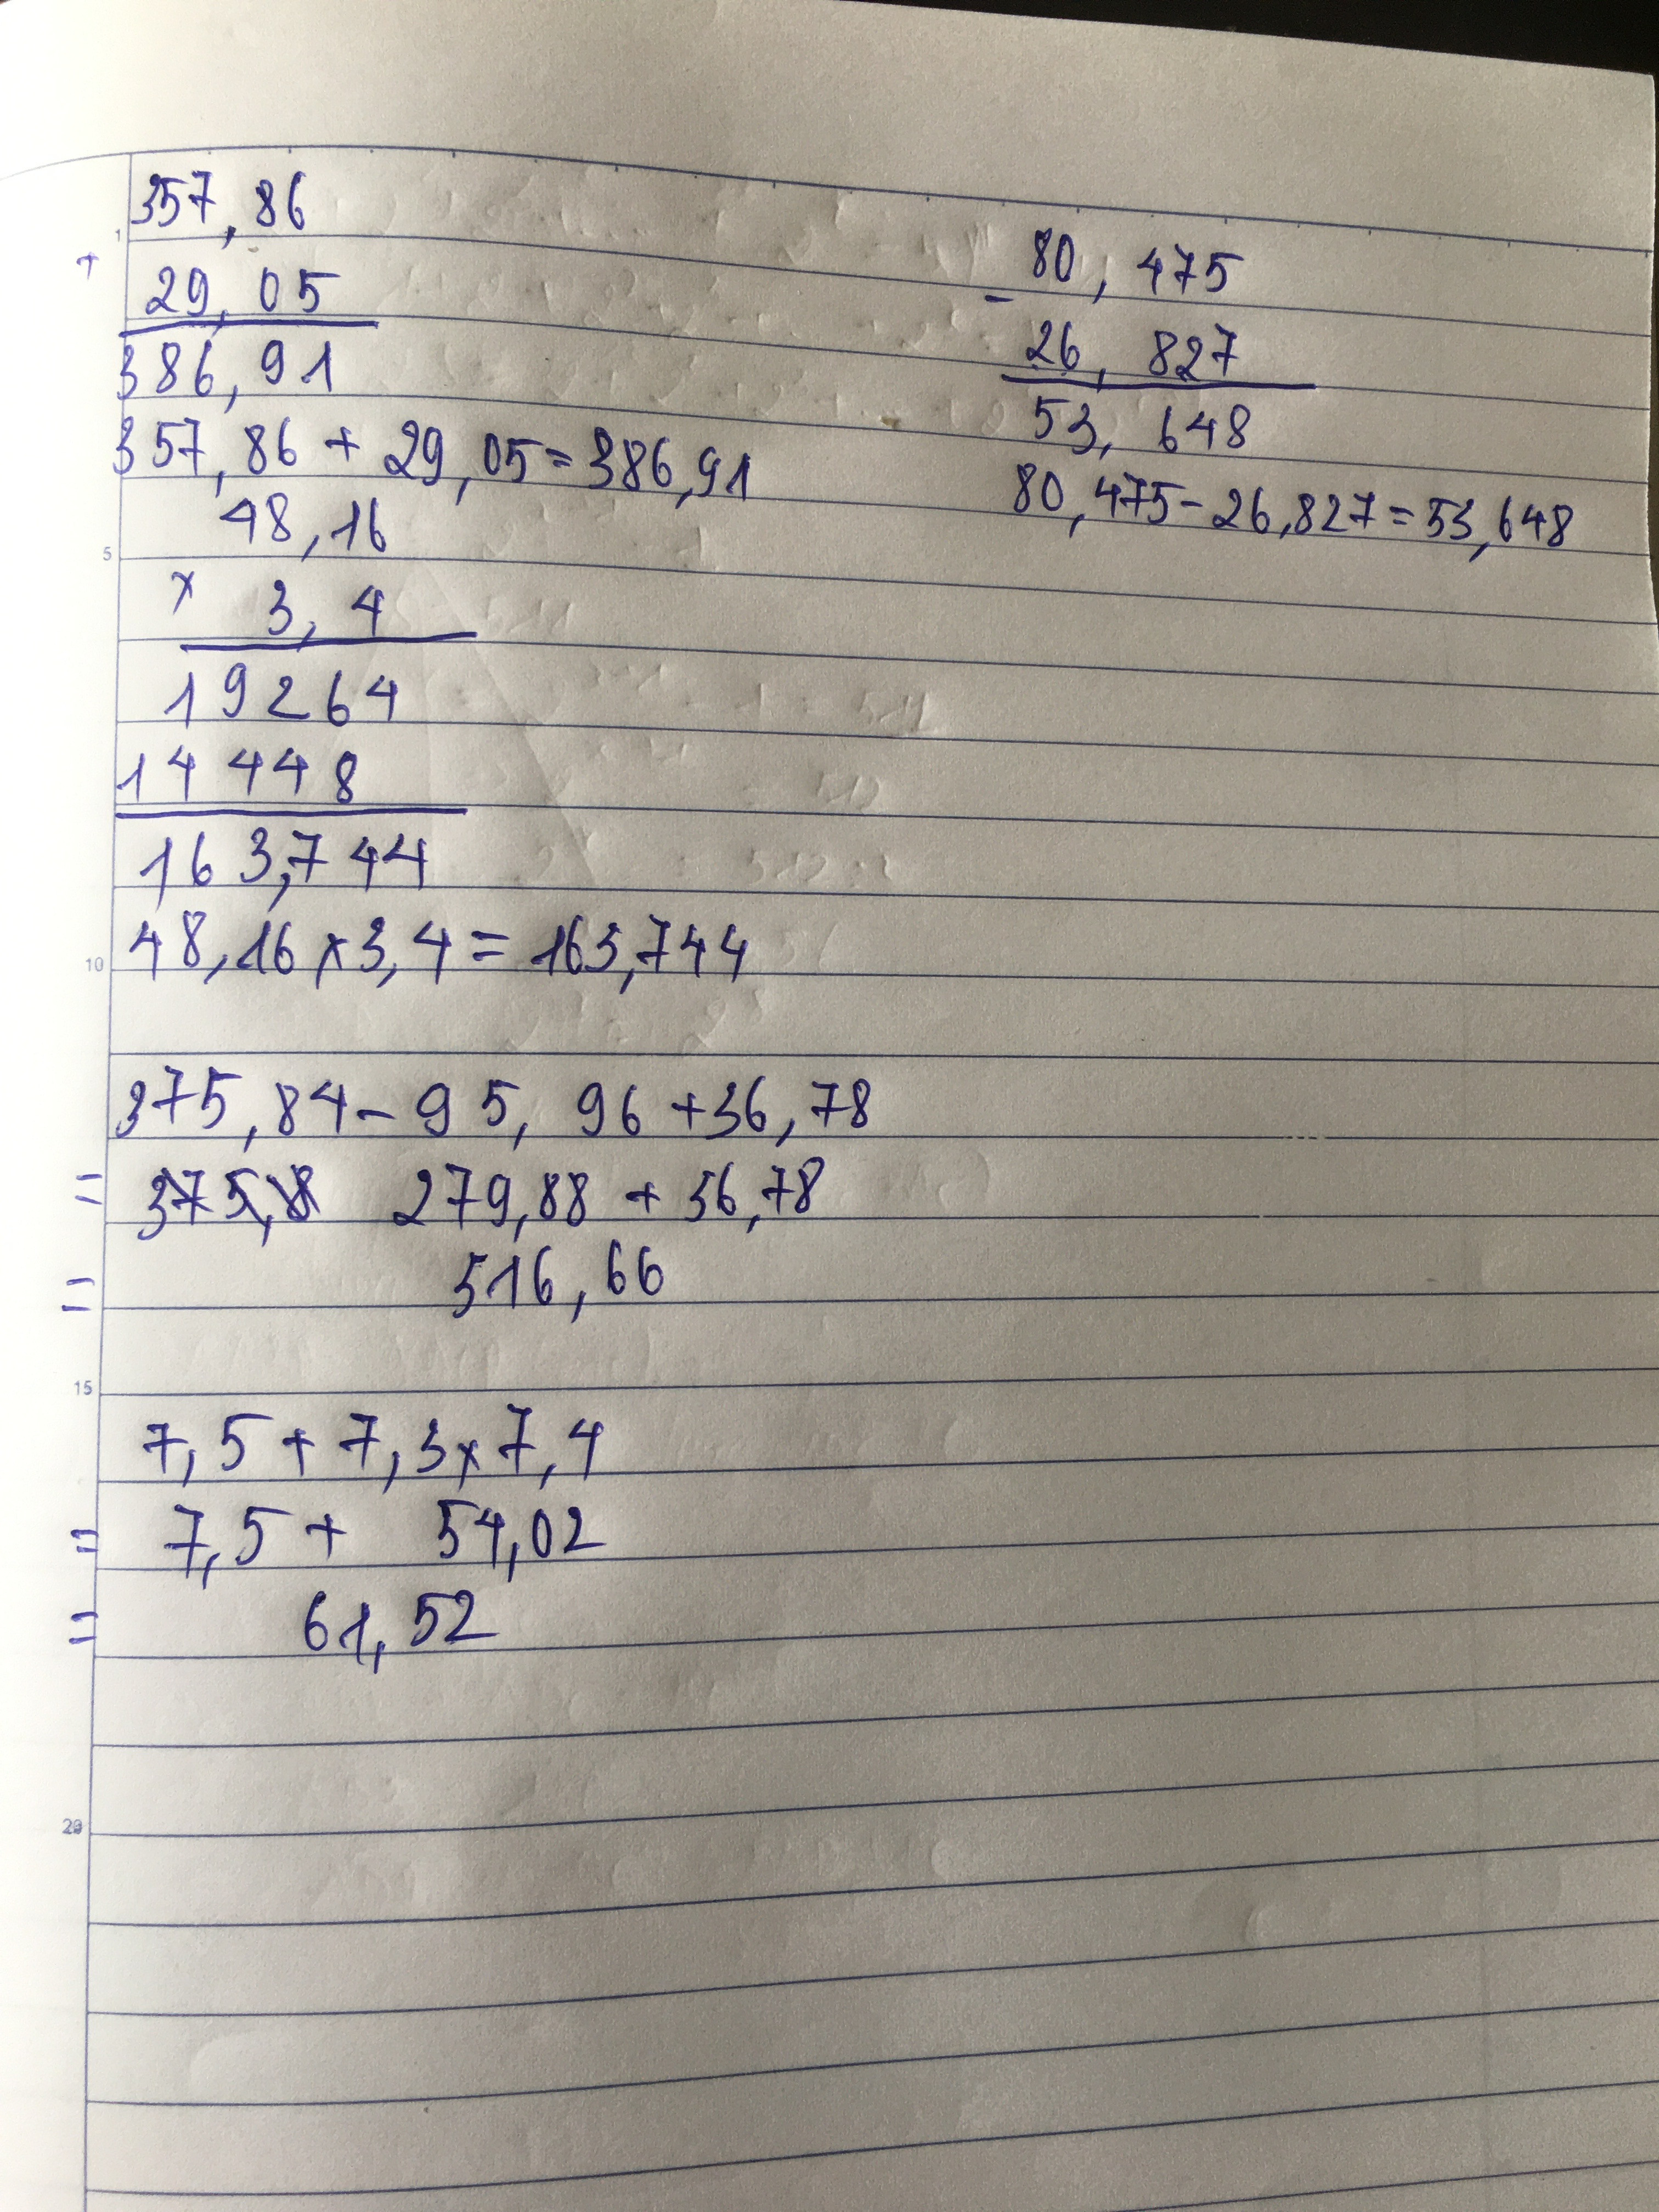 357,86
+
29,05
386,91
357,86 + 29,05 = 386,91
80,475
-
26,827
53,648
80,475 - 26,827 = 53,648
48,16
x 3,4
19264
14448
163,744
48,16 x 3,4 = 163,744
375,84 - 95,96 + 36,78
= 375,8 279,88 + 36,78
= 316,66
7,5 + 7,3 x 7,4
= 7,5 + 54,02
= 61,52
1
5
10
15
20